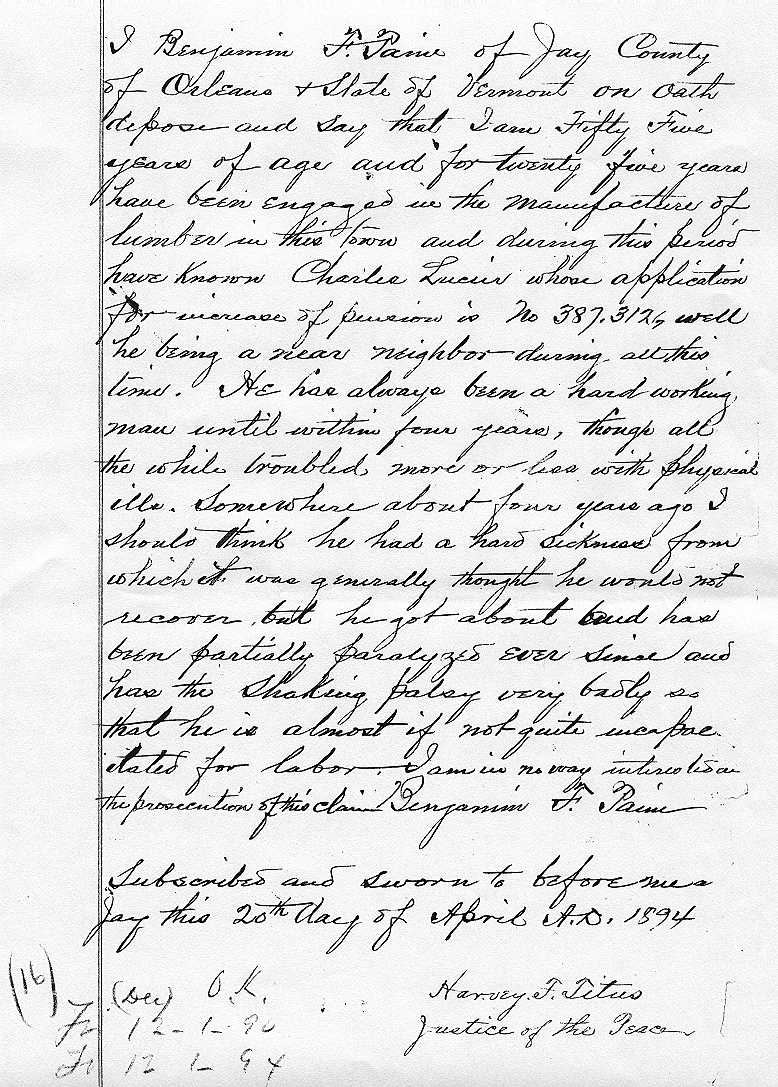 I Benjamin F. Paine of Jay County
of Orleans & State of Vermont on oath
depose and say that I am Fifty Five
years of age and for twenty five years
have been engaged in the manufacture of
lumber in this town and during this period
have known Charles Lucier whose application
for increase of pension is No 387.312, well
he being a near neighbor during all this
time. He has always been a hard working
man until within four years, though all
the while troubled more or less with physical
ills. Somewhere about four years ago I
should think he had a hard sickness from
which it was generally thought he would not
recover but he got about and has
been partially paralyzed ever since and
has the shaking palsy very badly so
that he is almost if not quite incapac
itated for labor. I am in no way interested in
the prosecution of this claim Benjamin F. Paine
Subscribed and sworn to before me a
Jay this 20th day of April A.D. 1894
(16)
(Dec) O.K.
Harvey. F. Titus
12-1-90
Justice of the Peace
12 1-94